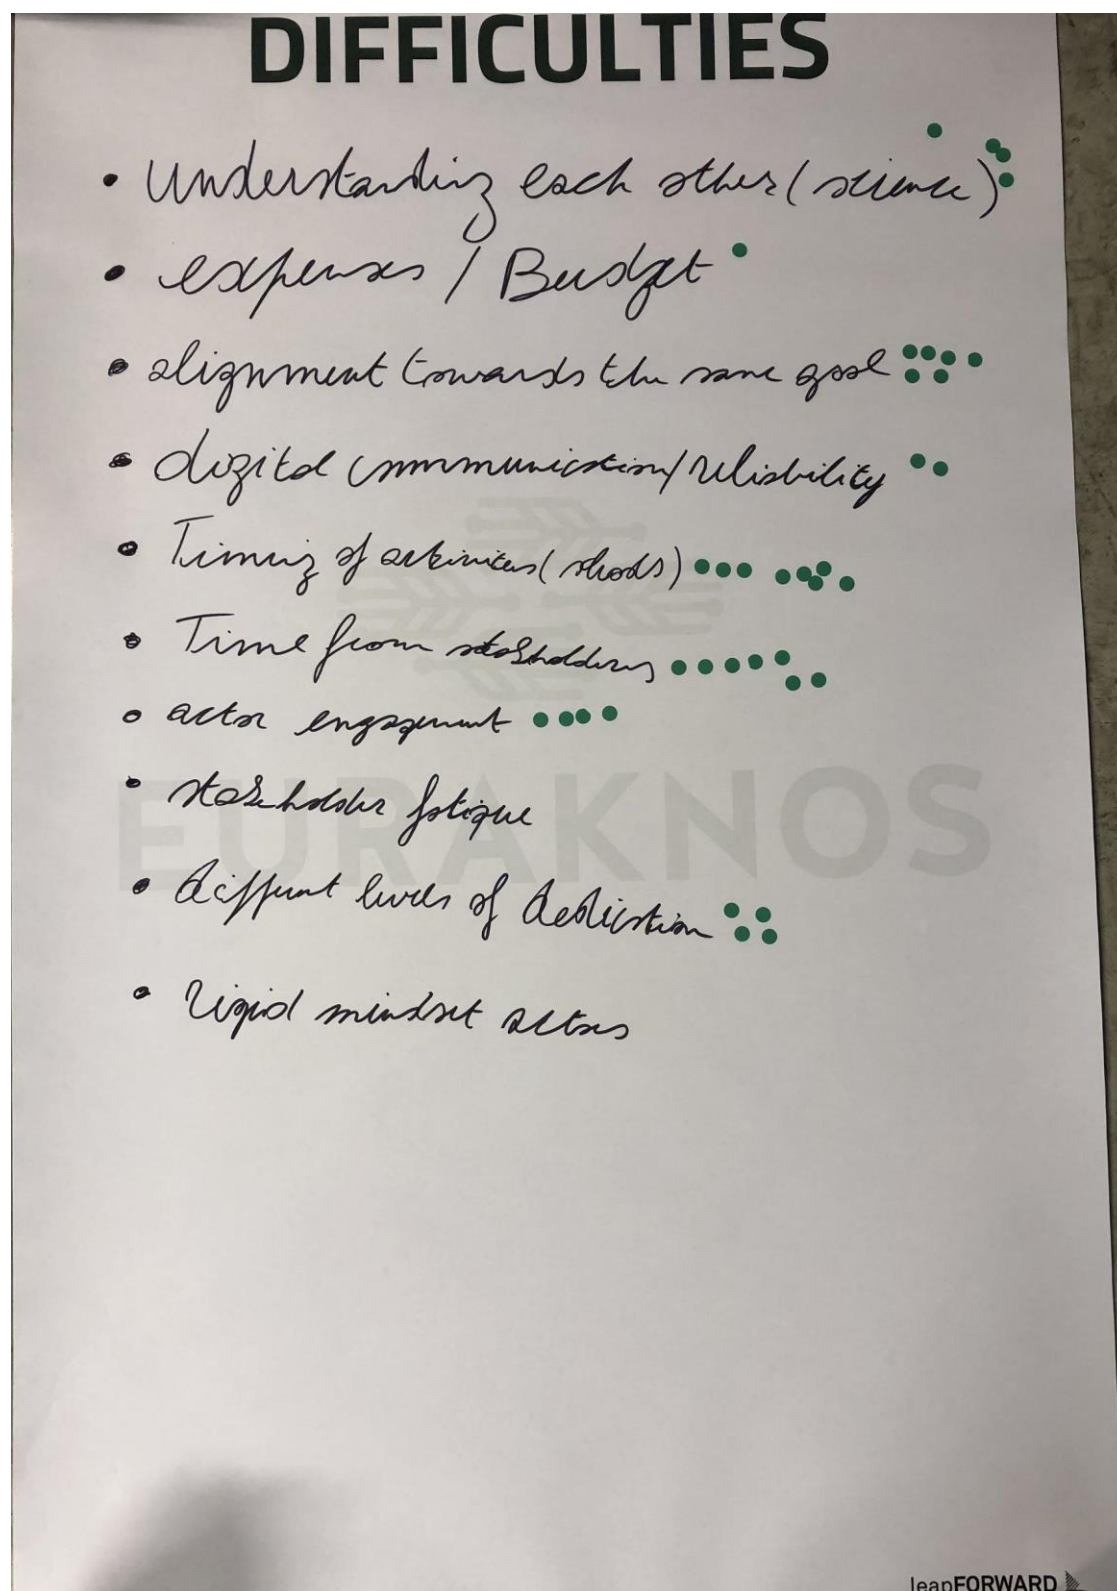 DIFFICULTIES
• Understanding each other (science)
• expenses / Budget
• alignment towards the same goal
• digital communication/reliability
• Timing of activities ( )
• Time from stakeholders
• actor engagement
• stakeholder fatigue
EURAKNOS
• different levels of dedication
• rigid mindset actors
leapFORWARD